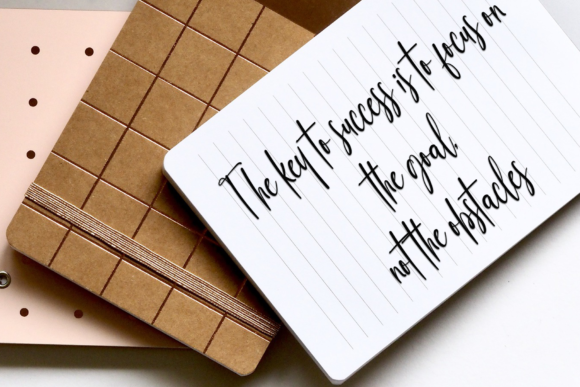 The key to success is to focus on
the goal,
not the obstacles